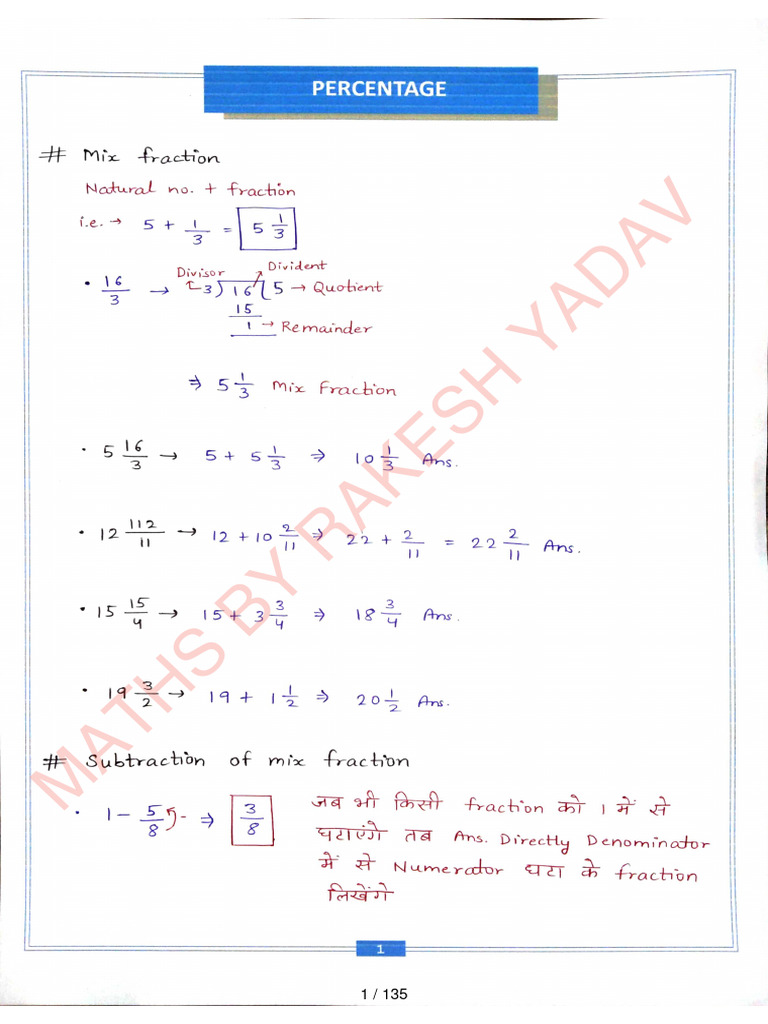 PERCENTAGE
# Mix fraction
Natural no. + fraction
i.e. → 5 + 1/3 = 5 1/3
Divisor Divident
• 16/3 → 3) 16 (5 → Quotient
15
1 → Remainder
⇒ 5 1/3 Mix Fraction
• 5 16/3 → 5 + 5 1/3 ⇒ 10 1/3 Ans.
• 12 112/11 → 12 + 10 2/11 ⇒ 22 + 2/11 = 22 2/11 Ans.
• 15 15/4 → 15 + 3 3/4 ⇒ 18 3/4 Ans.
• 19 3/2 → 19 + 1 1/2 ⇒ 20 1/2 Ans.
# Subtraction of mix fraction
• 1 - 5/8 - ⇒ 3/8
जब भी किसी fraction को 1 में से
घटाएंगे तब Ans. Directly Denominator
में से Numerator घटा के fraction
लिखेंगे
MATHS BY RAKESH YADAV
1
1 / 135